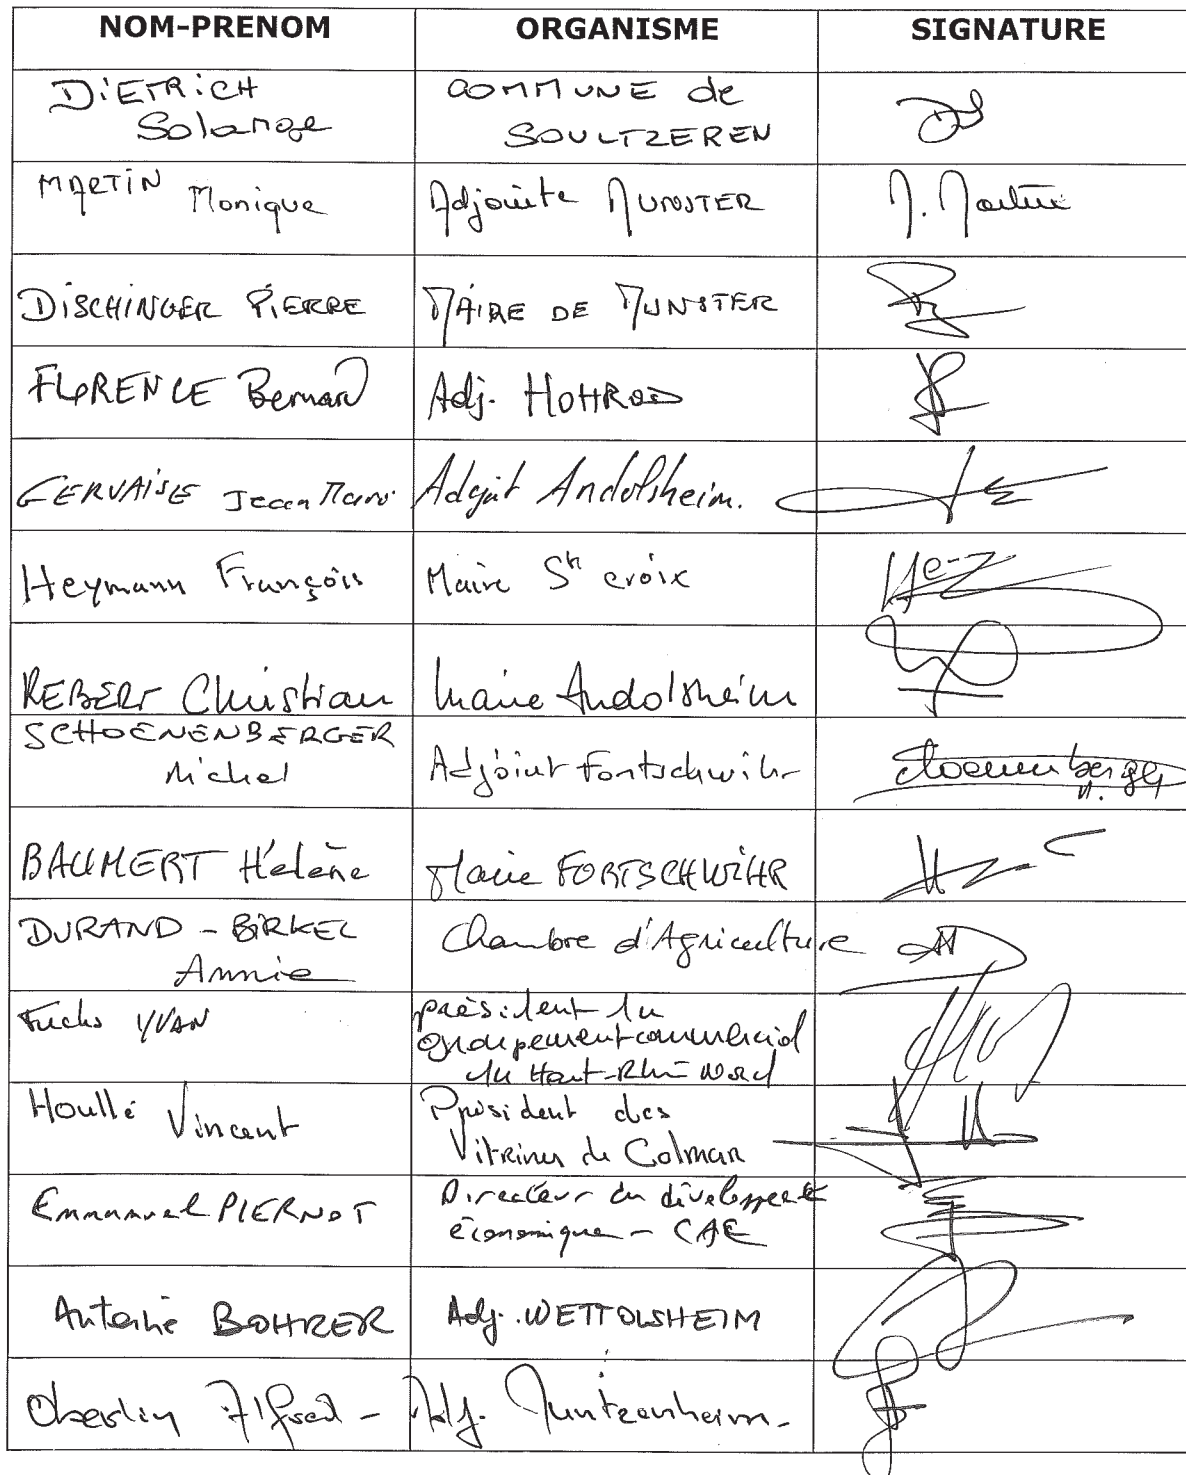 NOM-PRENOM ORGANISME SIGNATURE
DiETRiCH COMMUNE de
Solange SOULTZEREN
MARTiN Monique Adjointe MUNSTER M. Martin
DiSCHiNGER PiERRE MAIRE DE MUNSTER
FLORENCE Bernard Adj. HOHROD
GERVAiSE Jean Marc Adjoint Andolsheim.
Heymann François Maire Ste croix
REBERT Christian Maire Andolsheim
SCHOENENBERGER
Michel Adjoint Fortschwihr Schoenenberger M.
BAUMERT Hélène Maire FORTSCHWIHR
DURAND - BiRKEL Chambre d'Agriculture
Annie
Fuchs YVAN président du
groupement commercial
du Haut-Rhin Nord
Houllé Vincent Président des
Vitrines de Colmar
Emmanuel PIERNOT Directeur du développemt
économique - CAE
Antoine BOHRER Adj. WETTOLSHEIM
Oberlin Alfred - Adj. Muntzenheim.